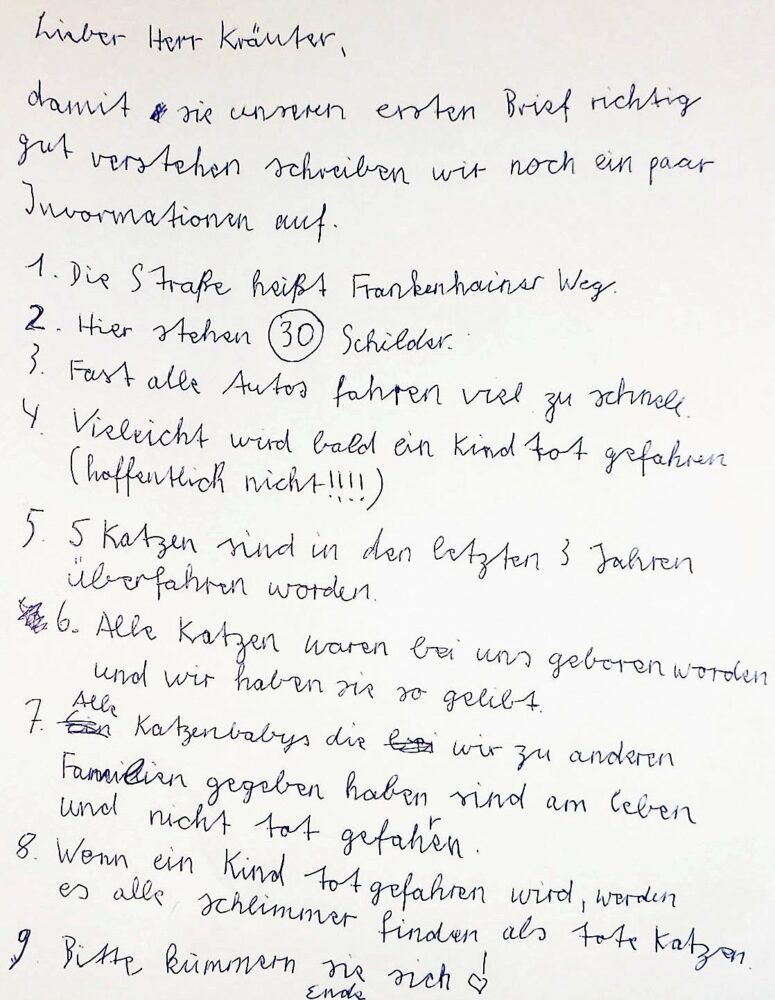 Lieber Herr Kräuter,
damit sie unseren ersten Brief richtig
gut verstehen schreiben wir noch ein paar
Invormationen auf.
1. Die Straße heißt Frankenhainer Weg.
2. Hier stehen 30 Schilder.
3. Fast alle Autos fahren viel zu schnell.
4. Vieleicht wird bald ein Kind tot gefahren
(hoffentlich nicht!!!!)
5. 5 Katzen sind in den letzten 3 Jahren
überfahren worden.
6. Alle Katzen waren bei uns geboren worden
und wir haben sie so gelibt.
7. Alle Katzenbabys die wir zu anderen
Familien gegeben haben sind am leben
und nicht tot gefahren.
8. Wenn ein Kind totgefahren wird, werden
es alle schlimmer finden als tote Katzen.
9 Bitte kümmern sie sich!
Ende